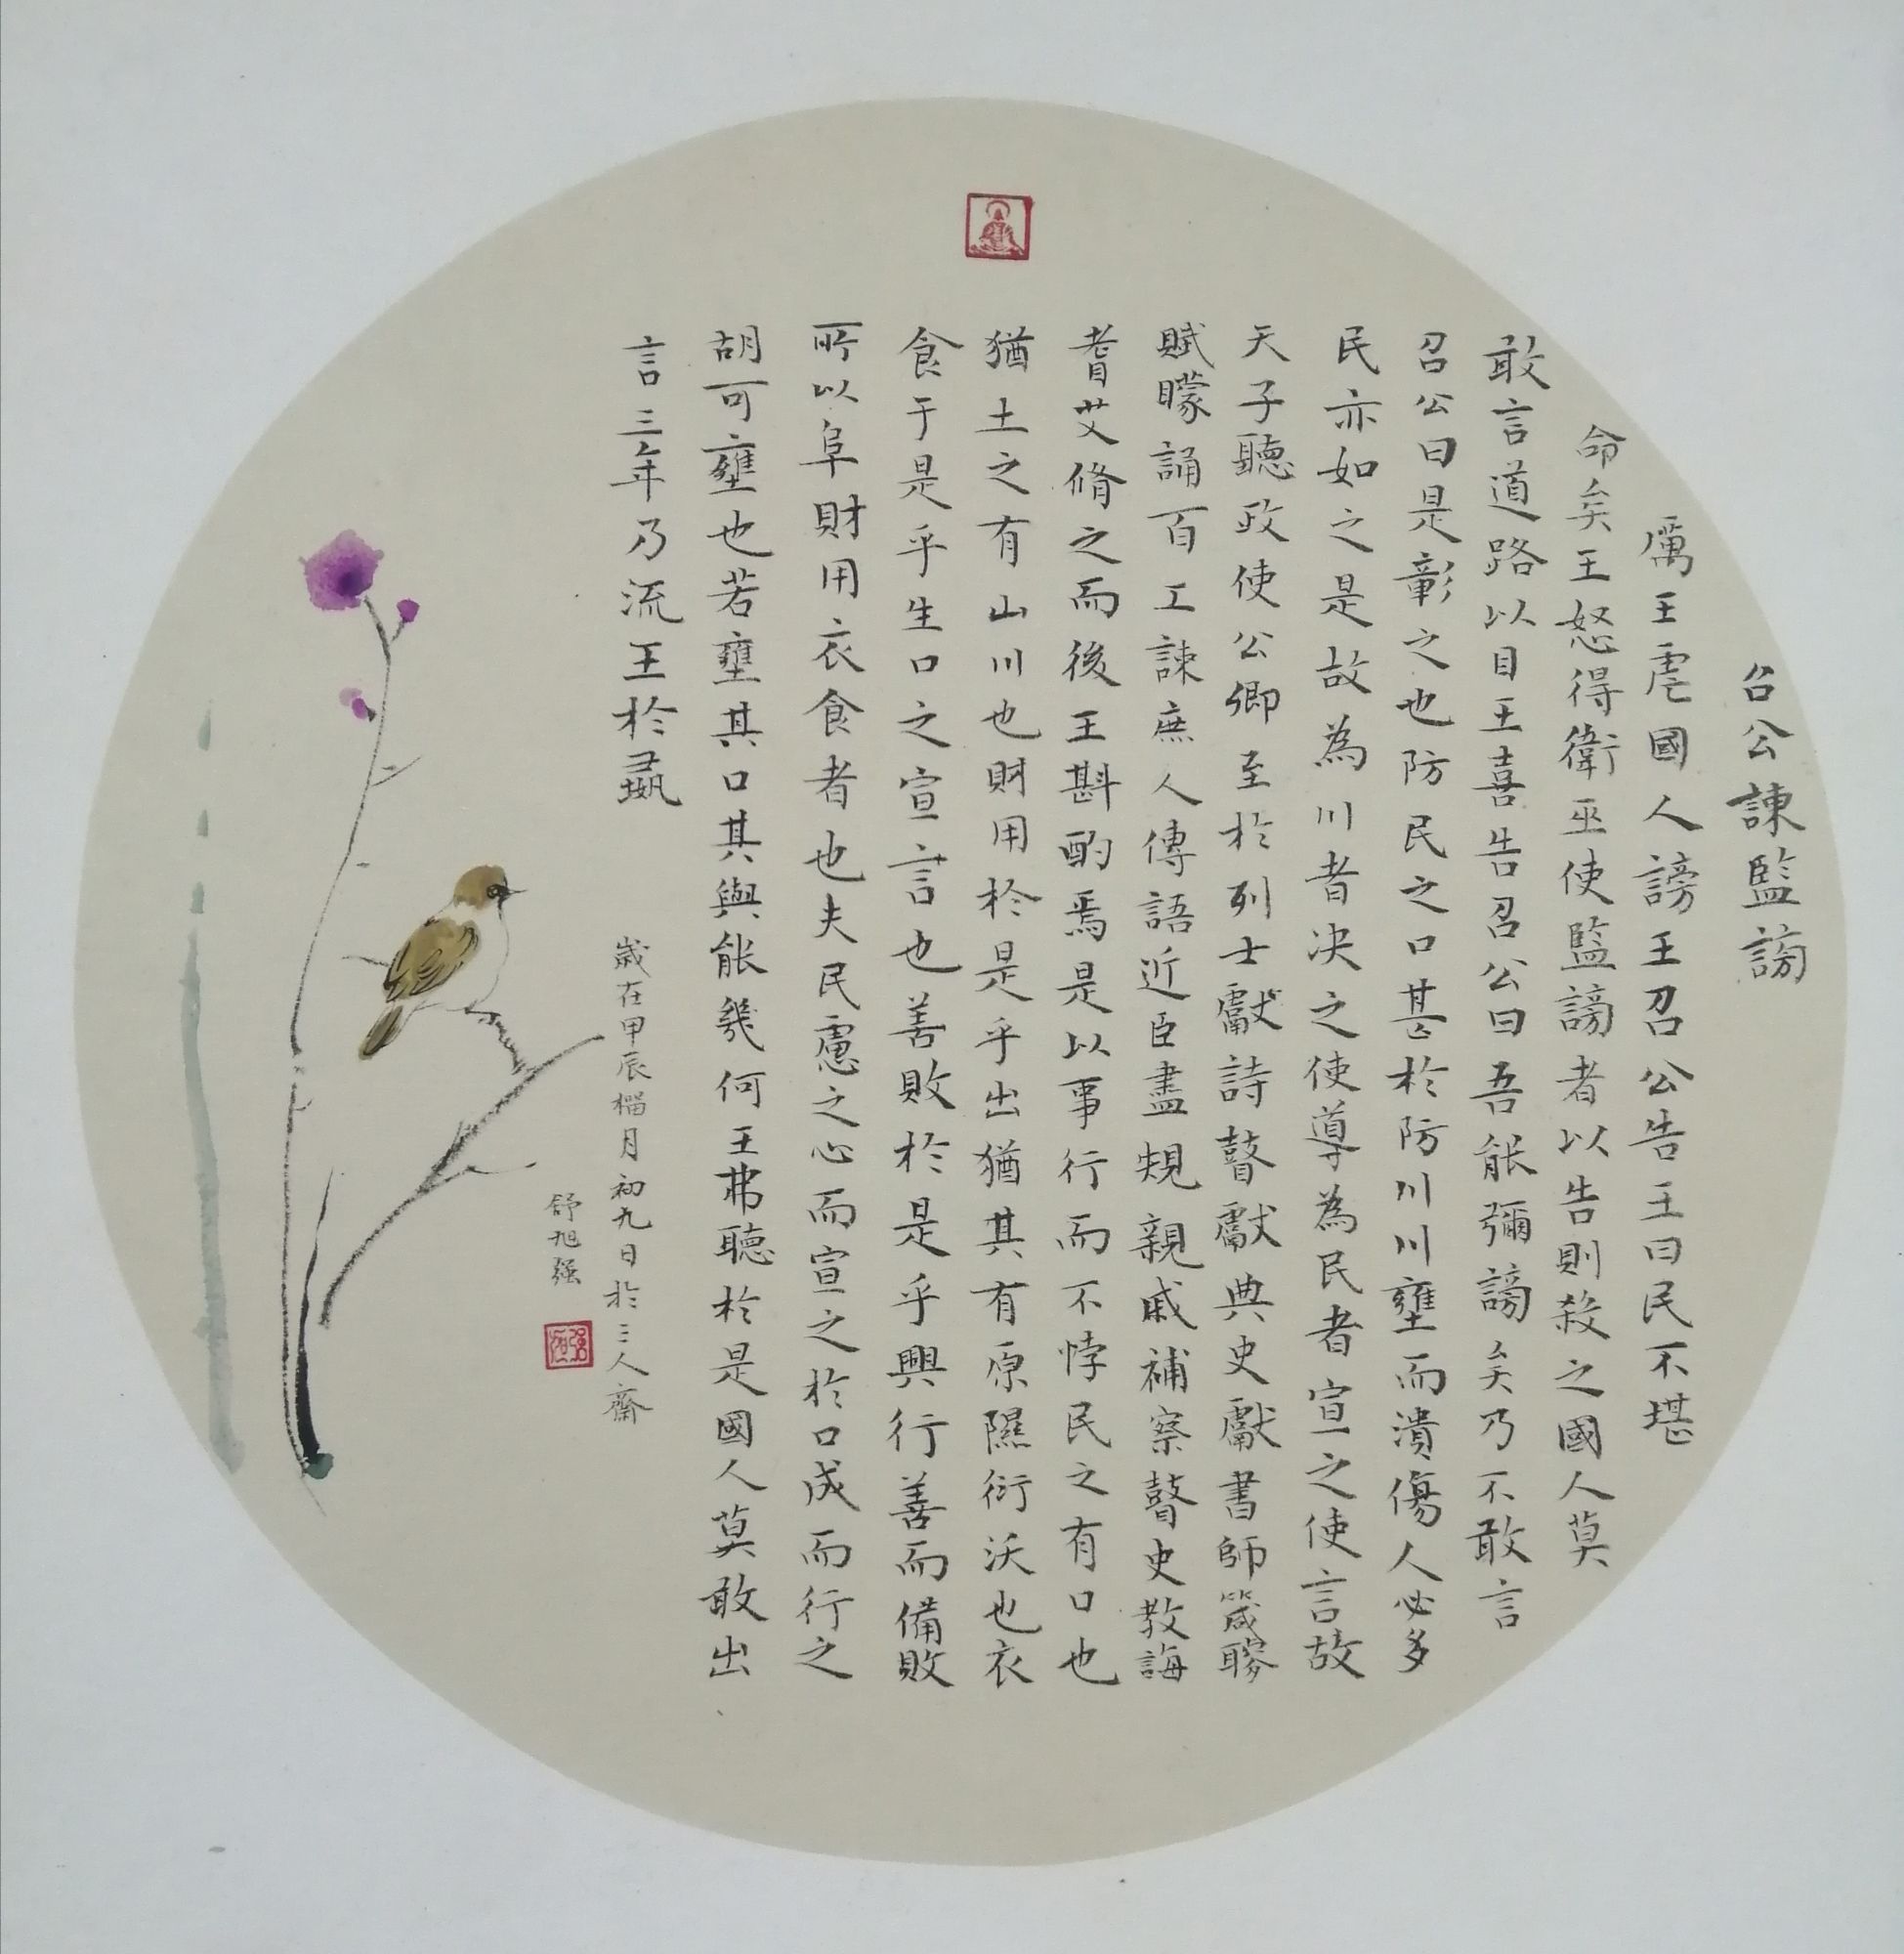 召公諫監謗
厲王虐國人謗王召公告王曰民不堪
命矣王怒得衛巫使監謗者以告則殺之國人莫
敢言道路以目王喜告召公曰吾能彌謗矣乃不敢言
召公曰是彰之也防民之口甚於防川川壅而潰傷人必多
民亦如之是故為川者决之使導為民者宣之使言故
天子聽政使公卿至於列士獻詩瞽獻典史獻書師箴瞍
賦矇誦百工諫庶人傳語近臣盡規親戚補察瞽史教誨
耆艾脩之而後王斟酌焉是以事行而不悖民之有口也
猶土之有山川也財用於是乎出猶其有原隰衍沃也衣
食于是乎生口之宣言也善敗於是乎興行善而備敗
所以阜財用衣食者也夫民慮之心而宣之於口成而行之
胡可壅也若壅其口其與能幾何王弗聽於是國人莫敢出
言三年乃流王於彘
歲在甲辰榴月初九日於三人齋
舒旭强